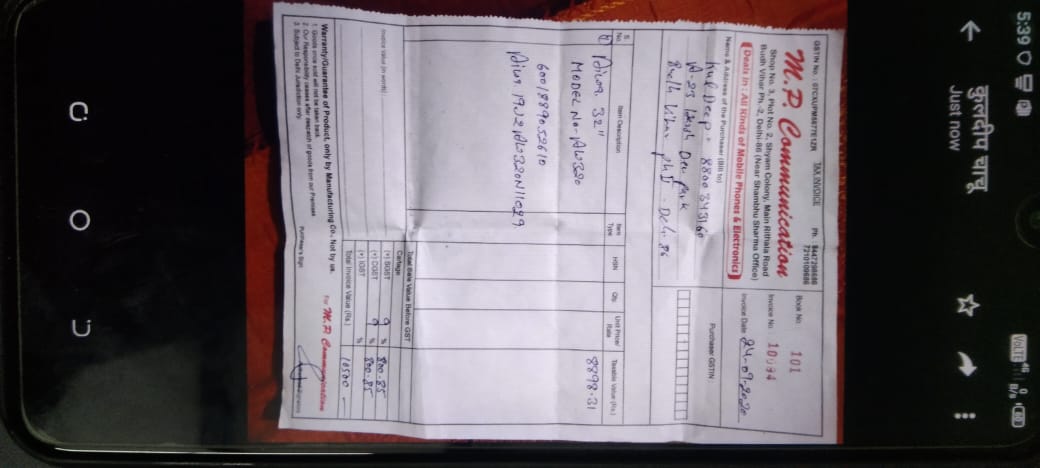 5:39
VOLTE 4G B/s
कुलदीप चाचू
Just now
GSTIN No.: 07CXUPM5877E1ZR TAX INVOICE Ph.
7210109686
M.P. Communication
Shop No. 3, Plot No. 2, Shyam Colony, Main Rithala Road
Budh Vihar Ph.-2, Delhi-86 (Near Shambhu Sharma Office)
Deals in : All Kinds of Mobile Phones & Electronics
Book No. 101
Invoice No. 10094
Invoice Date 24-09-2020
Name & Address of the Purchaser (Bill to)
Kul Deep - 8800343160
Budh Vihar ph II - Delhi 86
Purchaser GSTIN
S. No. Item Description Item Type HSN Qty. Unit Price/ Rate Taxable Value (Rs.)
Aiwa 32" 8898.31
MODEL No-AW320
6001889052610
Total Sale Value Before GST
Cartage
(+) SGST 9 % 800.85
(+) CGST 9 % 800.85
(+) IGST %
Total Invoice Value (Rs.) 10500
Invoice Value (in words)
Warranty/Guarantee of Product, only by Manufacturing Co., Not by us.
1. Goods once sold will not be taken back.
2. Our Responsibility ceases after despatch of goods from our Premises
3. Subject to Delhi Jurisdiction only.
Purchaser's Sign.
For M.P. Communication